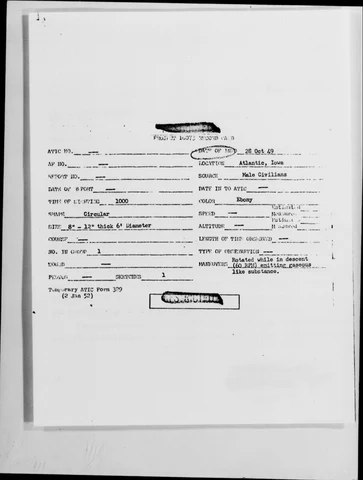 ATIC NO. — DATE OF INFO 28 Oct 49
AF NO. — LOCATION Atlantic, Iowa
REPORT NO. — SOURCE Male Civilians
DATE OF REPORT — DATE IN TO ATIC —
TIME OF SIGHTING 1000 COLOR Ebony
SHAPE Circular SPEED —
SIZE 8" - 12" thick 6' Diameter ALTITUDE —
COURSE — LENGTH OF TIME OBSERVED —
NO. IN GROUP 1 TYPE OF OBSERVATION —
SOUND — MANEUVERS Rotated while in descent
(60 RPM) emitting gaseous
like substance.
PHOTOS — SKETCHES 1
Temporary ATIC Form 329
(2 Jan 52)